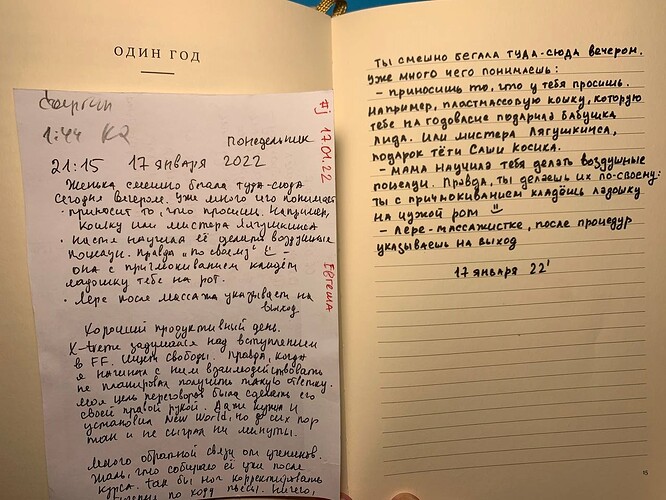 ОДИН ГОД
1:44
#j 17.01.22
понедельник
21:15 17 января 2022
Женька смешно бегала туда-сюда
сегодня вечером. Уже много чего понимает
- приносит то, что просим. Например,
кошку или мистера Лягушкинса
- Настя научила её делать воздушные
поцелуи. Правда "по своему" —
она с причмокиванием кладёт
ладошку тебе на рот.
- Лере после массажа указывает на
выход
Евгеша
Хороший продуктивный день.
задумался над вступлением
в FF. Ищет свободы. Правда, когда
я начинал с ним взаимодействовать
не планировал получить такую ответку.
Моя цель переговоров была сделать его
своей правой рукой. Даже купил и
установил New World, но до сих пор
так и не сыграл ни минуты.
Много обратной связи от учеников.
Жаль, что собираю её уже после
курса. Так бы мог корректировать
по ходу пьесы. Ничего,
Ты смешно бегала туда-сюда вечером.
Уже много чего понимаешь:
- приносишь то, что у тебя просишь.
Например, пластмассовую кошку, которую
тебе на годовасие подарила бабушка
Лида. Или мистера Лягушкинса,
подарок тёти Саши Косика.
- мама научила тебя делать воздушные
поцелуи. Правда, ты делаешь их по-своему:
ты с причмокиванием кладёшь ладошку
на чужой рот
- Лере-массажистке, после процедур
указываешь на выход
17 января 22'
15